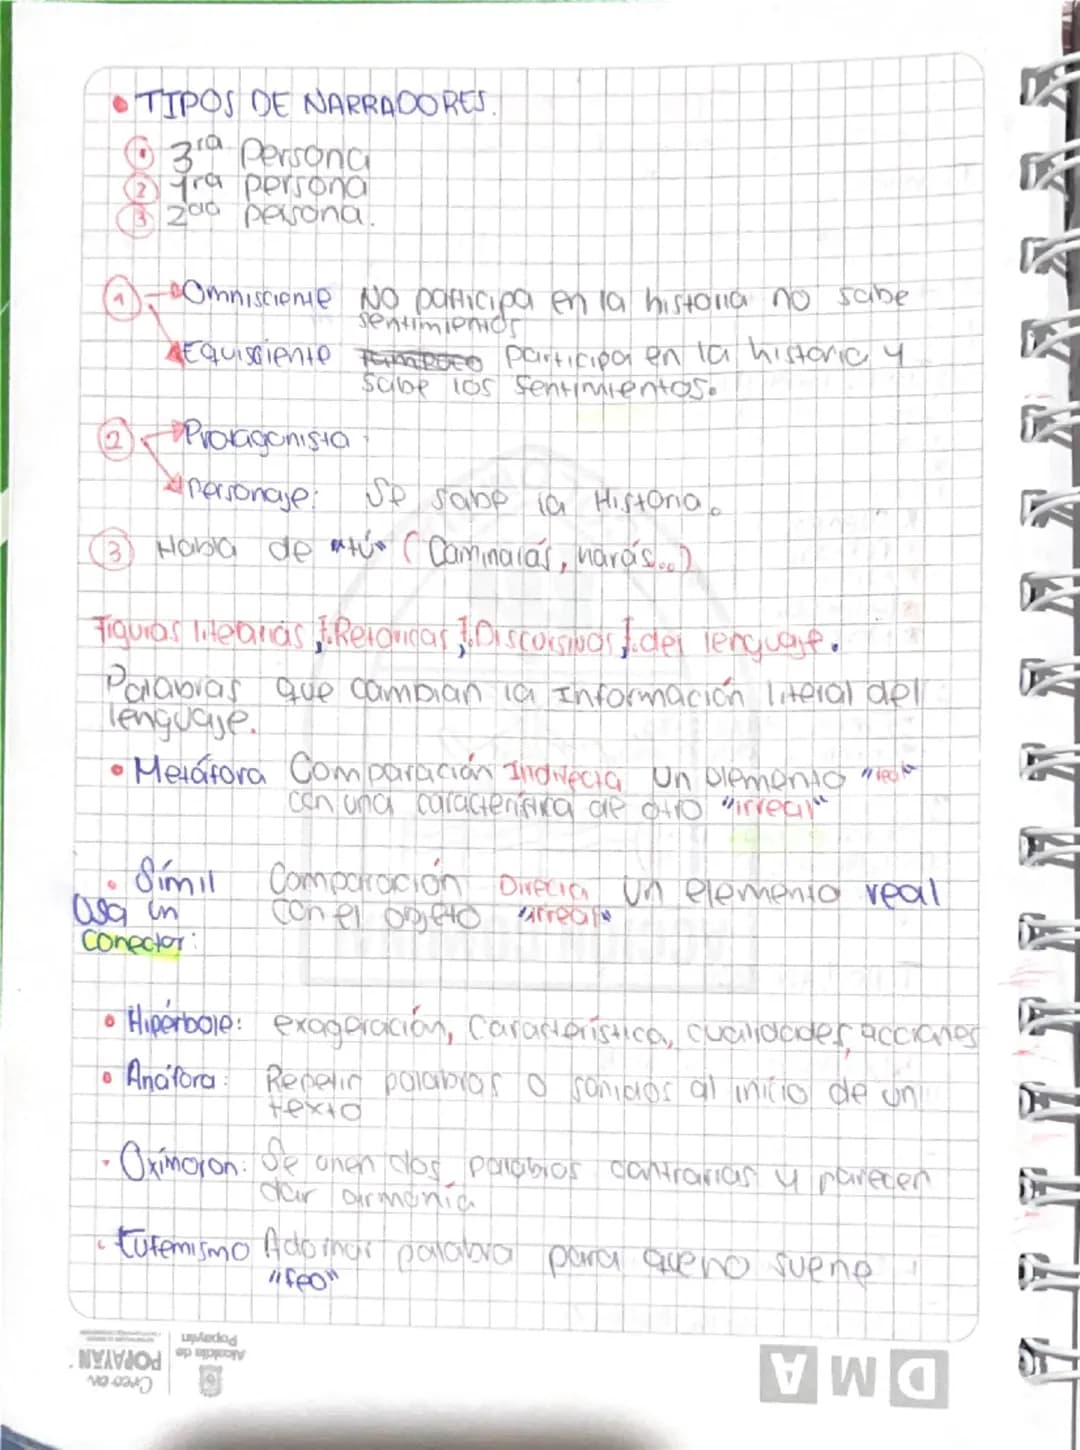 • TIPOS DE NARRADORES.
1 3ra Persona
2 1ra persona
3 2da persona.
1 Omnisciente No participa en la historia no sabe
sentimientos
Equisciente participa en la historia y
sabe los sentimientos.
2 Protagonista
personaje: Se sabe la Historia.
3 Habla de "tú" (Caminarás, harás...)
Figuras literarias, F. Retoricas, F. Discursivas, F. del lenguaje.
Palabras que cambian la Información literal del
lenguaje.
• Metáfora Comparación Indirecta Un elemento "real"
con una característica de otro "irreal"
• Símil Comparación Directa Un elemento real
Usa un con el objeto "irreal"
conector:
• Hipérbole: exageración, Característica, cualidades, acciones
• Anáfora: Repetir palabras o sonidos al inicio de un
texto
• Oxímoron: Se unen dos palabras contrarias y parecen
dar armonía
• Eufemismo Adornar palabra para que no suene
"feo"
Creo en
POPAYÁN
Alcaldía de
Popayán
D M A